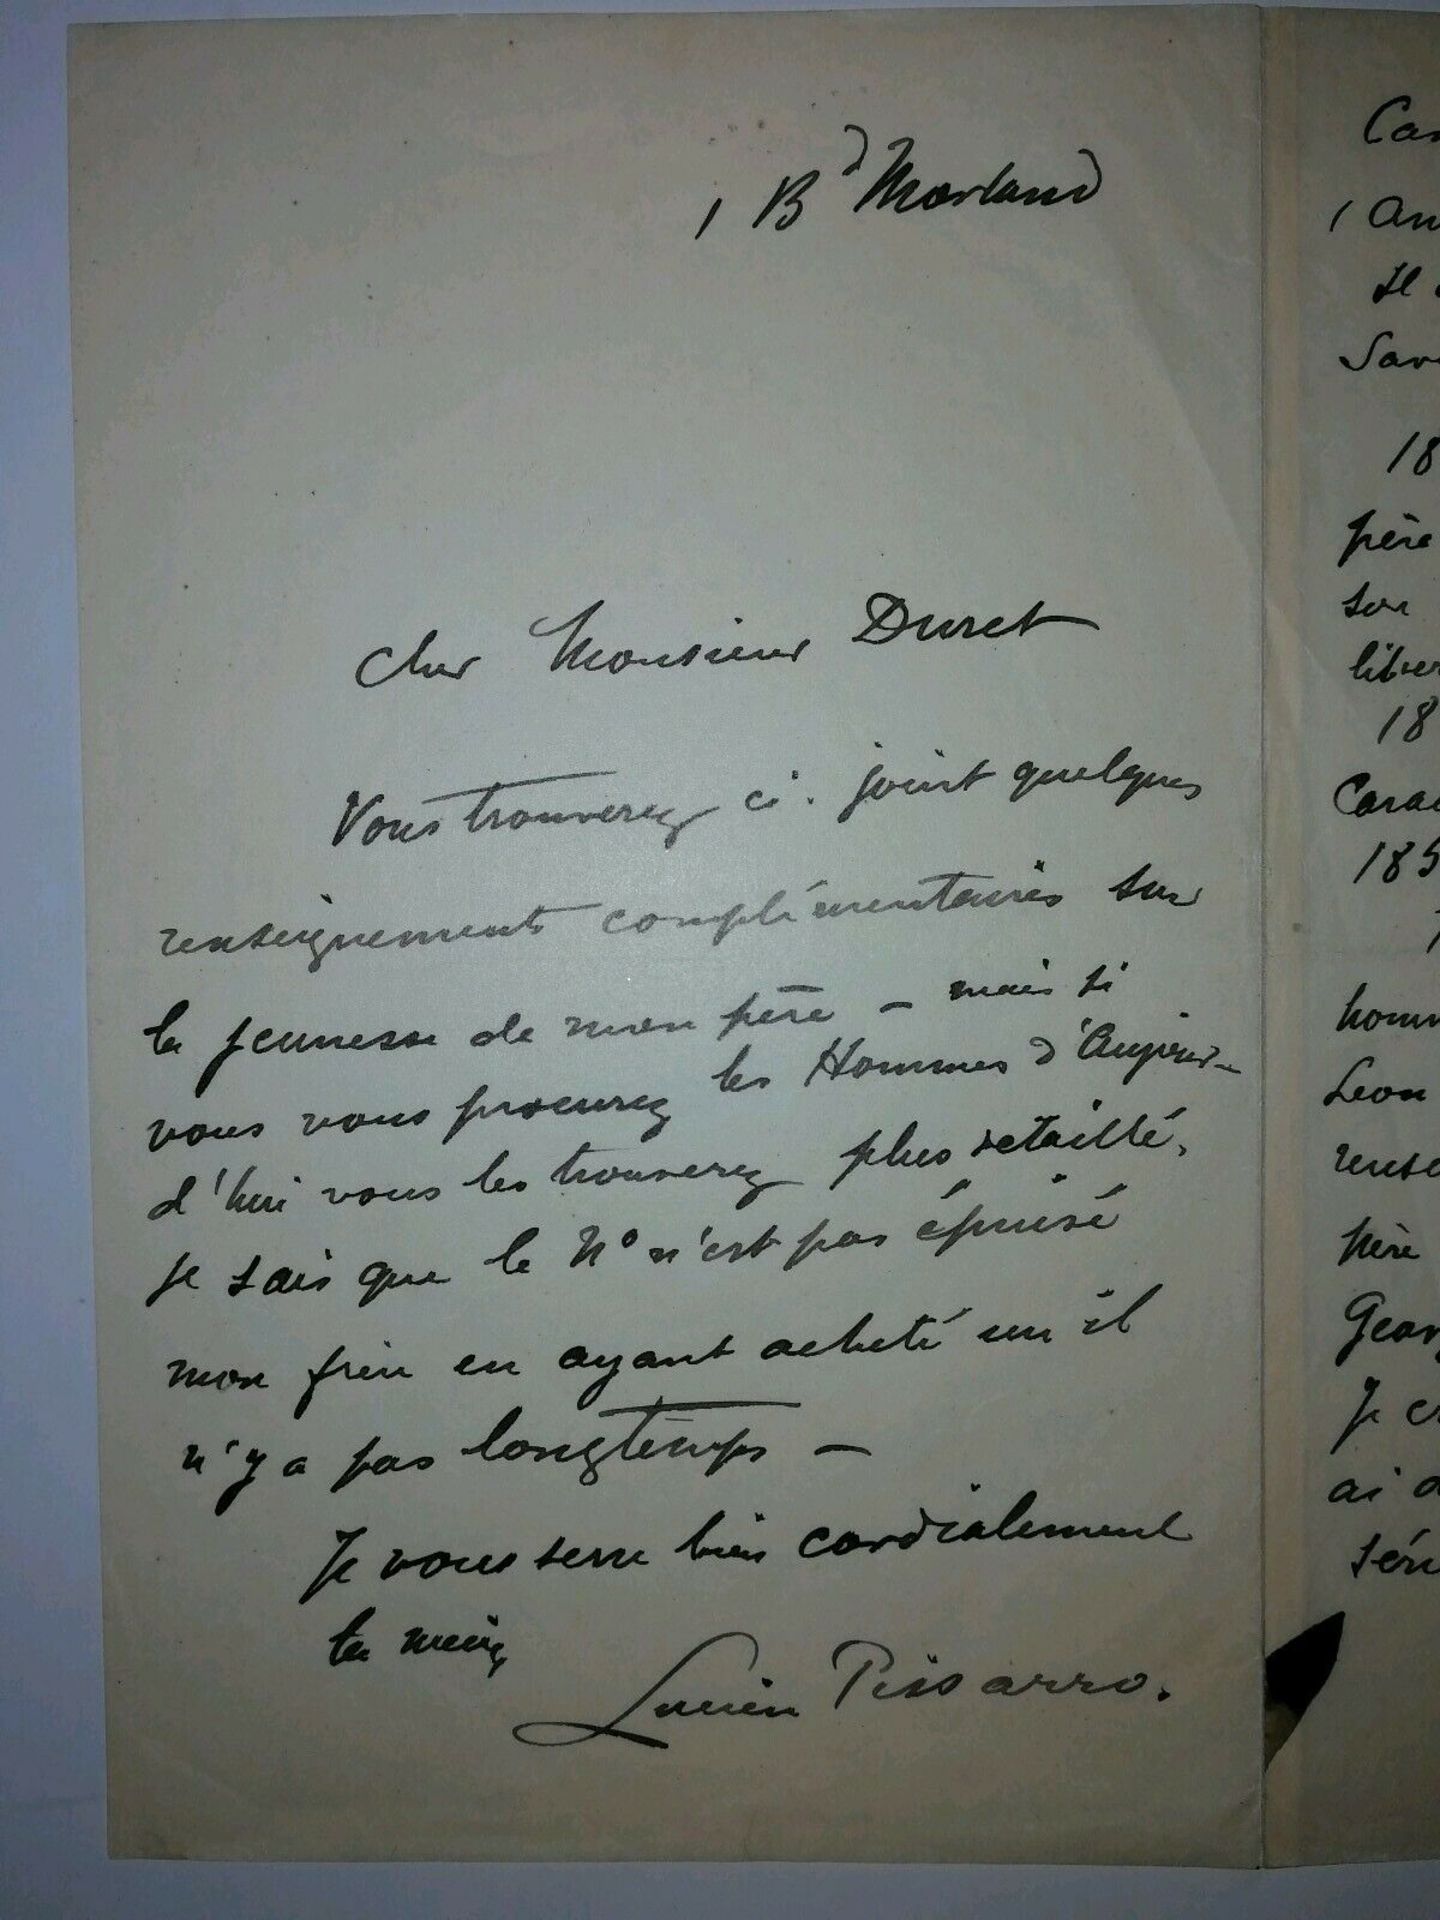 1 Bd Morland
Cher Monsieur Duret
Vous trouverez ci-joint quelques
renseignements complémentaires sur
la jeunesse de mon père — mais si
vous vous procurez les Hommes d'Aujour-
d'hui vous les trouverez plus detaillé,
je sais que le N° n'est pas épuisé
mon frère en ayant acheté un il
n'y a pas longtemps —
Je vous serre bien cordialement
la main
Lucien Pissarro.
18
père
son
18
185
Leon
père
Je
ai